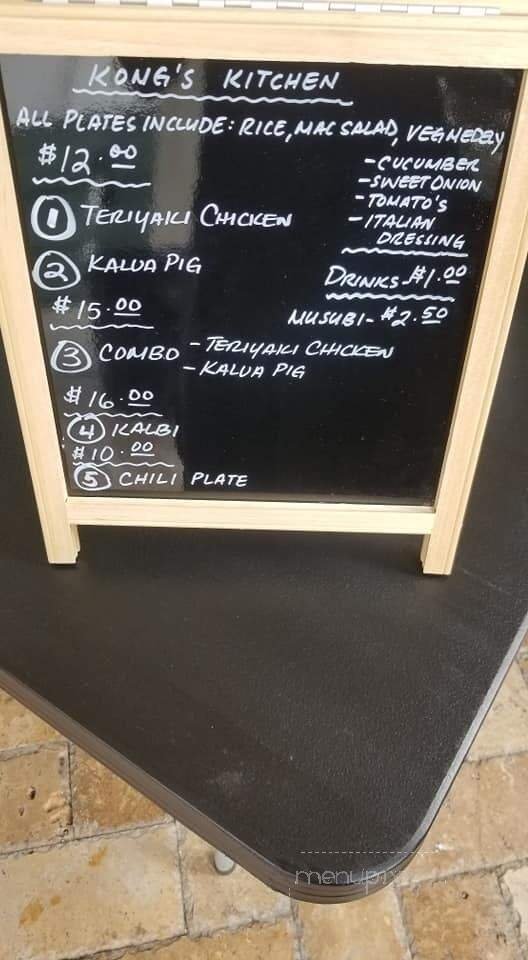 KONG'S KITCHEN
ALL PLATES INCLUDE: RICE, MAC SALAD, VEG MEDELY
- CUCUMBER
- SWEET ONION
- TOMATO'S
- ITALIAN
DRESSING
$12.00
1 TERIYAKI CHICKEN
2 KALUA PIG
DRINKS - $1.00
MUSUBI - $2.50
$15.00
3 COMBO - TERIYAKI CHICKEN
- KALUA PIG
$16.00
4 KALBI
$10.00
5 CHILI PLATE